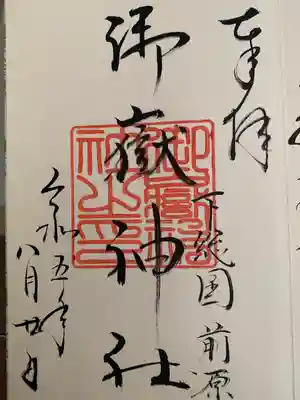 奉拝
下総国 前原
御嶽神社
御嶽神社之印
令和五年
八月廿日